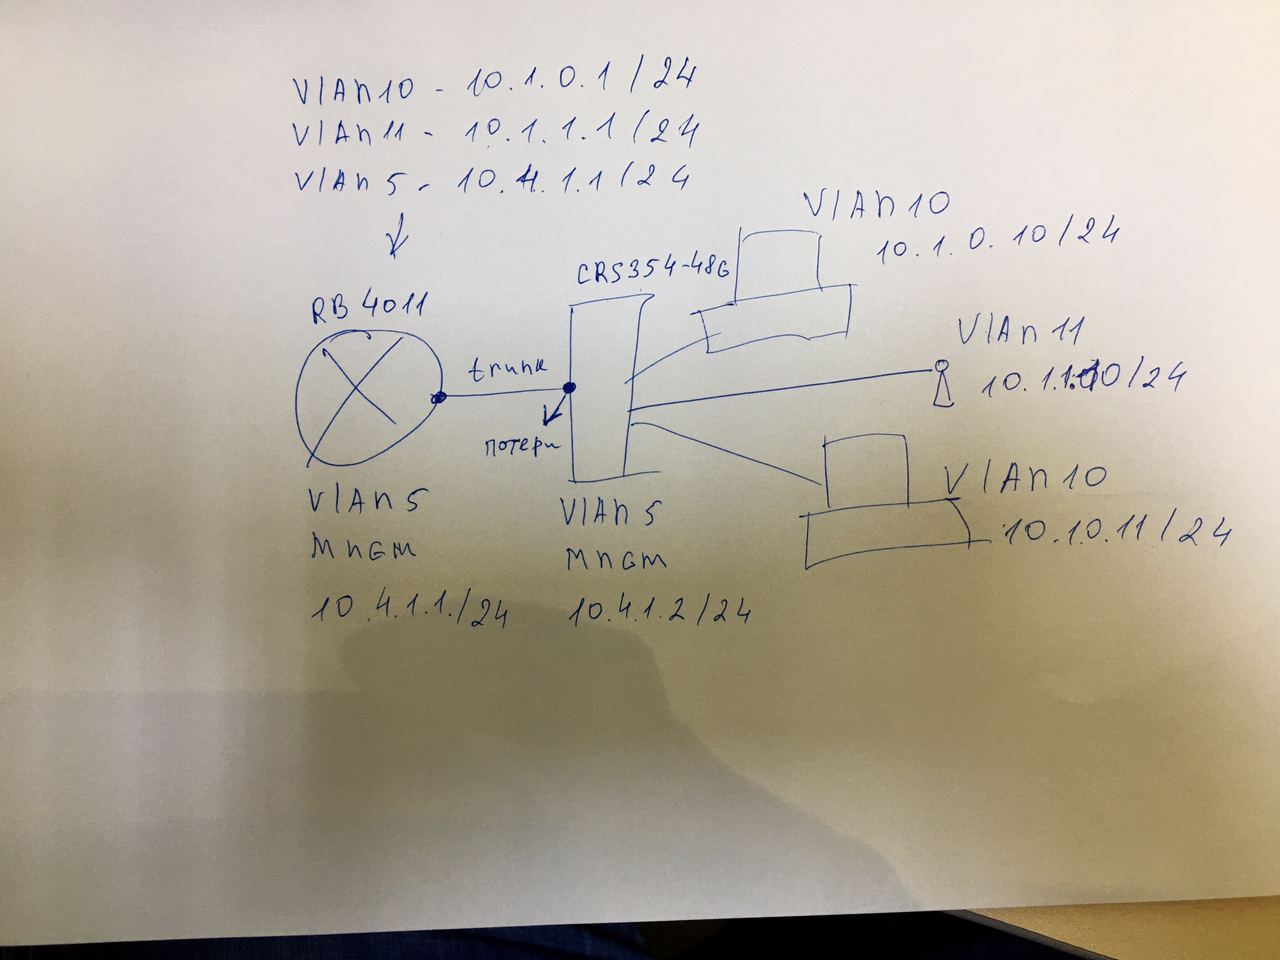 VlAn10 - 10.1.0.1/24
VlAn11 - 10.1.1.1/24
VlAn5 - 10.4.1.1/24
VlAn10
10.1.0.10/24
CRS354-48G
RB4011
VlAn11
10.1.1.10/24
trunk
потери
VlAn10
10.1.0.11/24
VlAn5
MnGm
10.4.1.1./24
VlAn5
MnGm
10.4.1.2/24